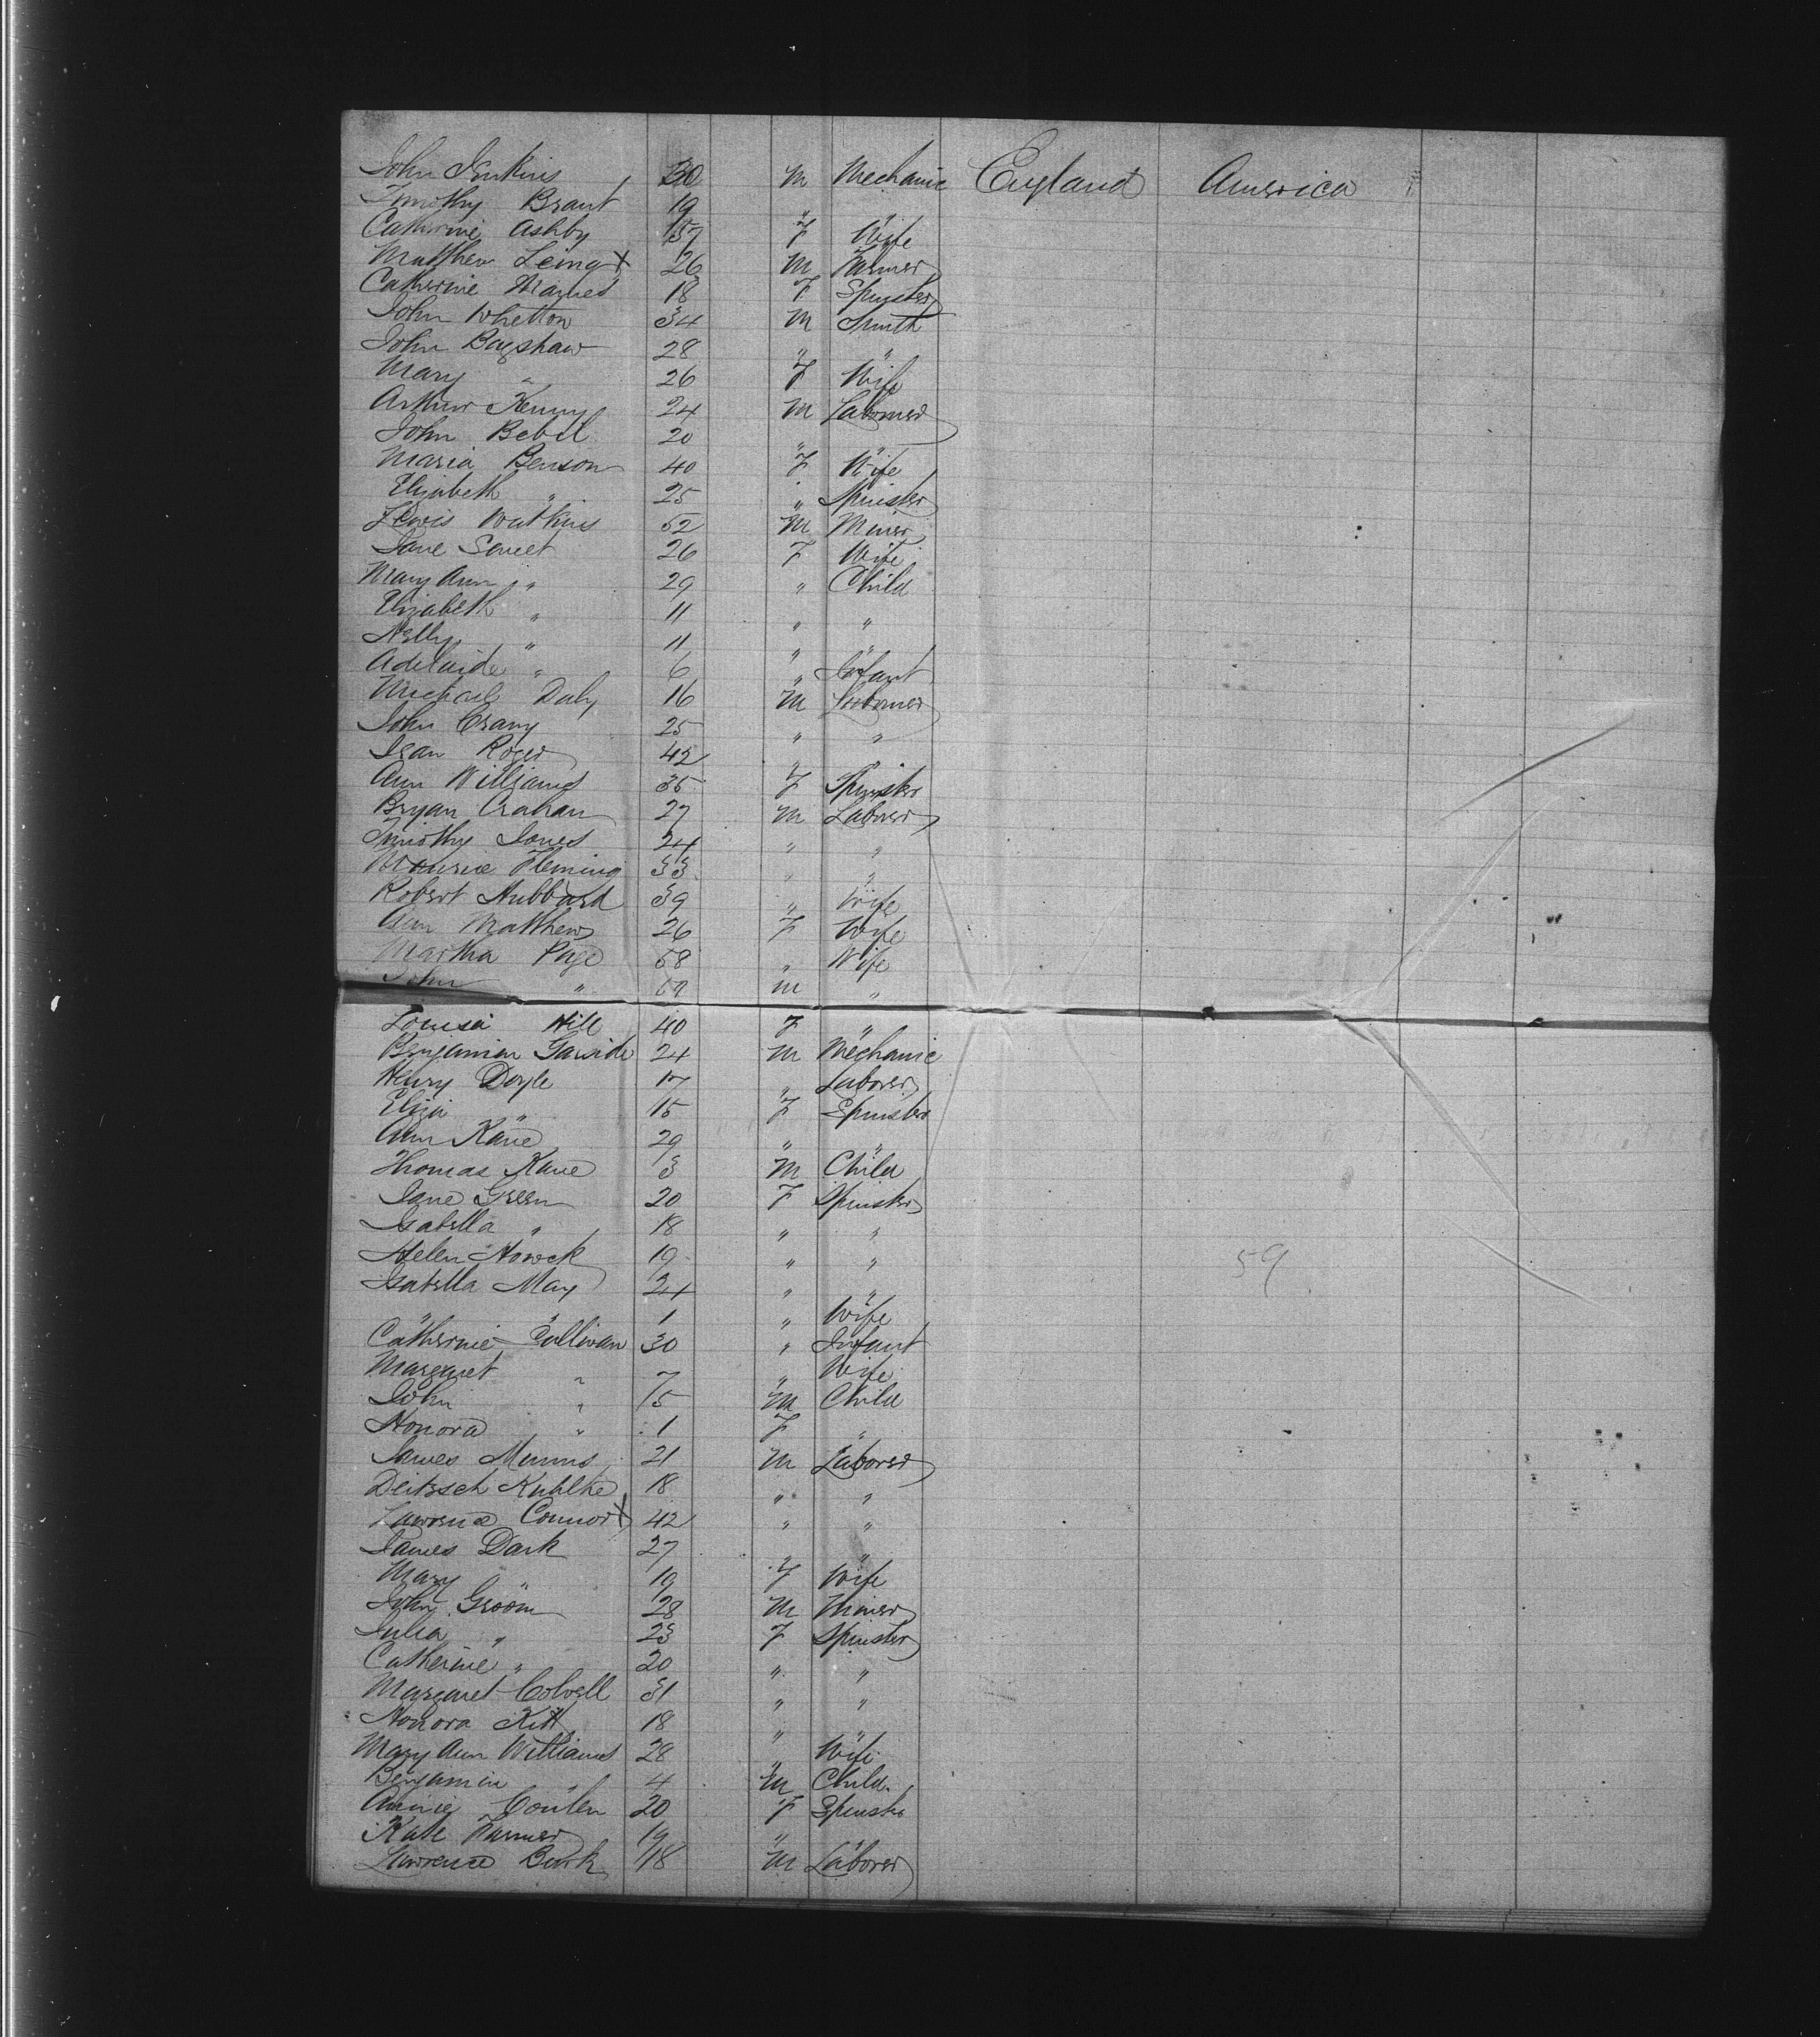 John Jenkins 30 M Mechanic England America
Timothy Brant 19 "
Catherine Ashby 37 F Wife
Matthew Leing X 26 M Farmer
Catherine 18 F Spinster
John Whetton 34 M Smith
John Bagshaw 28 " "
Mary " 26 F Wife
Arthur Kenny 24 M Laborer
John Bebil 20 " "
Maria Benson 40 F Wife
Elizabeth " 25 " Spinster
Lewis Watkins 52 M Miner
Jane 26 F Wife
Mary Ann " 29 " Child
Elizabeth " 11 " "
Nelly " 11 " "
Adelaide " 6 " Infant
Michael Daly 16 M Laborer
John Crany 25 " "
Roger 42 " "
Ann Williams 35 F Spinster
Bryan Crahan 27 M Laborer
Timothy Jones 24 " "
Maurice Fleming 33 " "
Robert Hubbard 39 " Wife
Ann Matthews 26 F Wife
Martha Page 58 " Wife
John " 59 M "
Louisa Hill 40 F "
Benjamin Garside 24 M Mechanic
Henry Doyle 17 " Laborer
Eliza " 15 F Spinster
Ann Kane 29 " "
Thomas Kane 3 M Child
Jane Green 20 F Spinster
Isabella " 18 " "
Helen Howek 19 " "
Isabella May 24 " "
" " 1 " Wife
Catherine Sullivan 30 " Infant
Margaret " 7 " Wife
John " 5 M Child
Honora " 1 F "
James Munns 21 M Laborer
Deitsch Kuhlke 18 " "
Lawrence Connor X 42 " "
James Dark 27 " "
Mary " 19 F Wife
John Groom 28 M Miner
Julia " 23 F Spinster
Catherine " 20 " "
Margaret Colvell 31 " "
Honora Kitt 18 " "
Mary Ann Williams 28 " Wife
Benjamin " 4 M Child
Annie Conlen 20 F Spinster
Kate Farmer 19 " "
Lawrence Burk 18 M Laborer
59